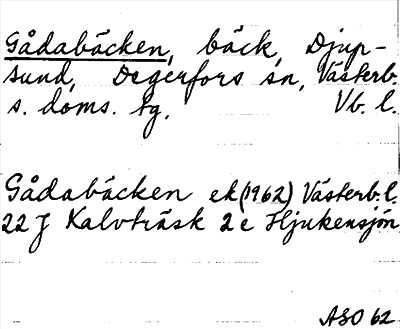 Gådabäcken, bäck, Djup-
sund, Degerfors sn, Västerb.
s. doms. tg, Vb. l.
Gådabäcken ek (1962) Västerb. l.
22 J Kalvträsk 2 e Hjukensjön
ASO 62